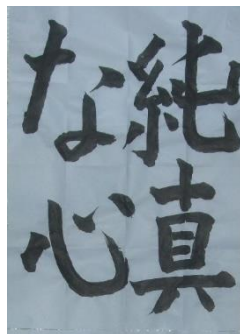 純真
な心